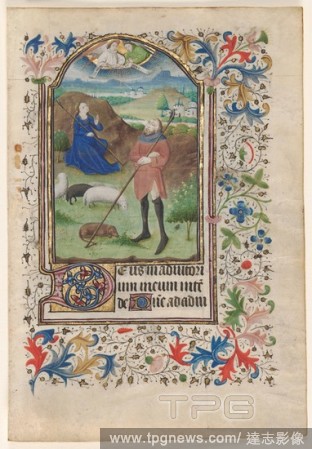 Eus in adiutori
um meum inte
de Dñe ad adiu
TPG
www.tpgnews.com/ 達志影像